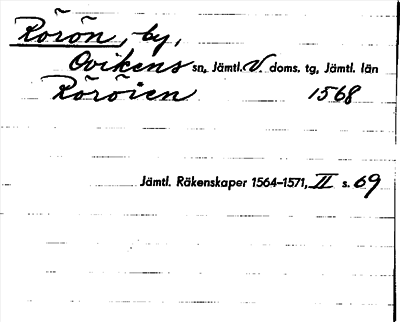 Rörön, by,
Ovikens sn, Jämtl. V. doms. tg, Jämtl. län
Röröien 1568
Jämtl. Räkenskaper 1564–1571, II s. 69